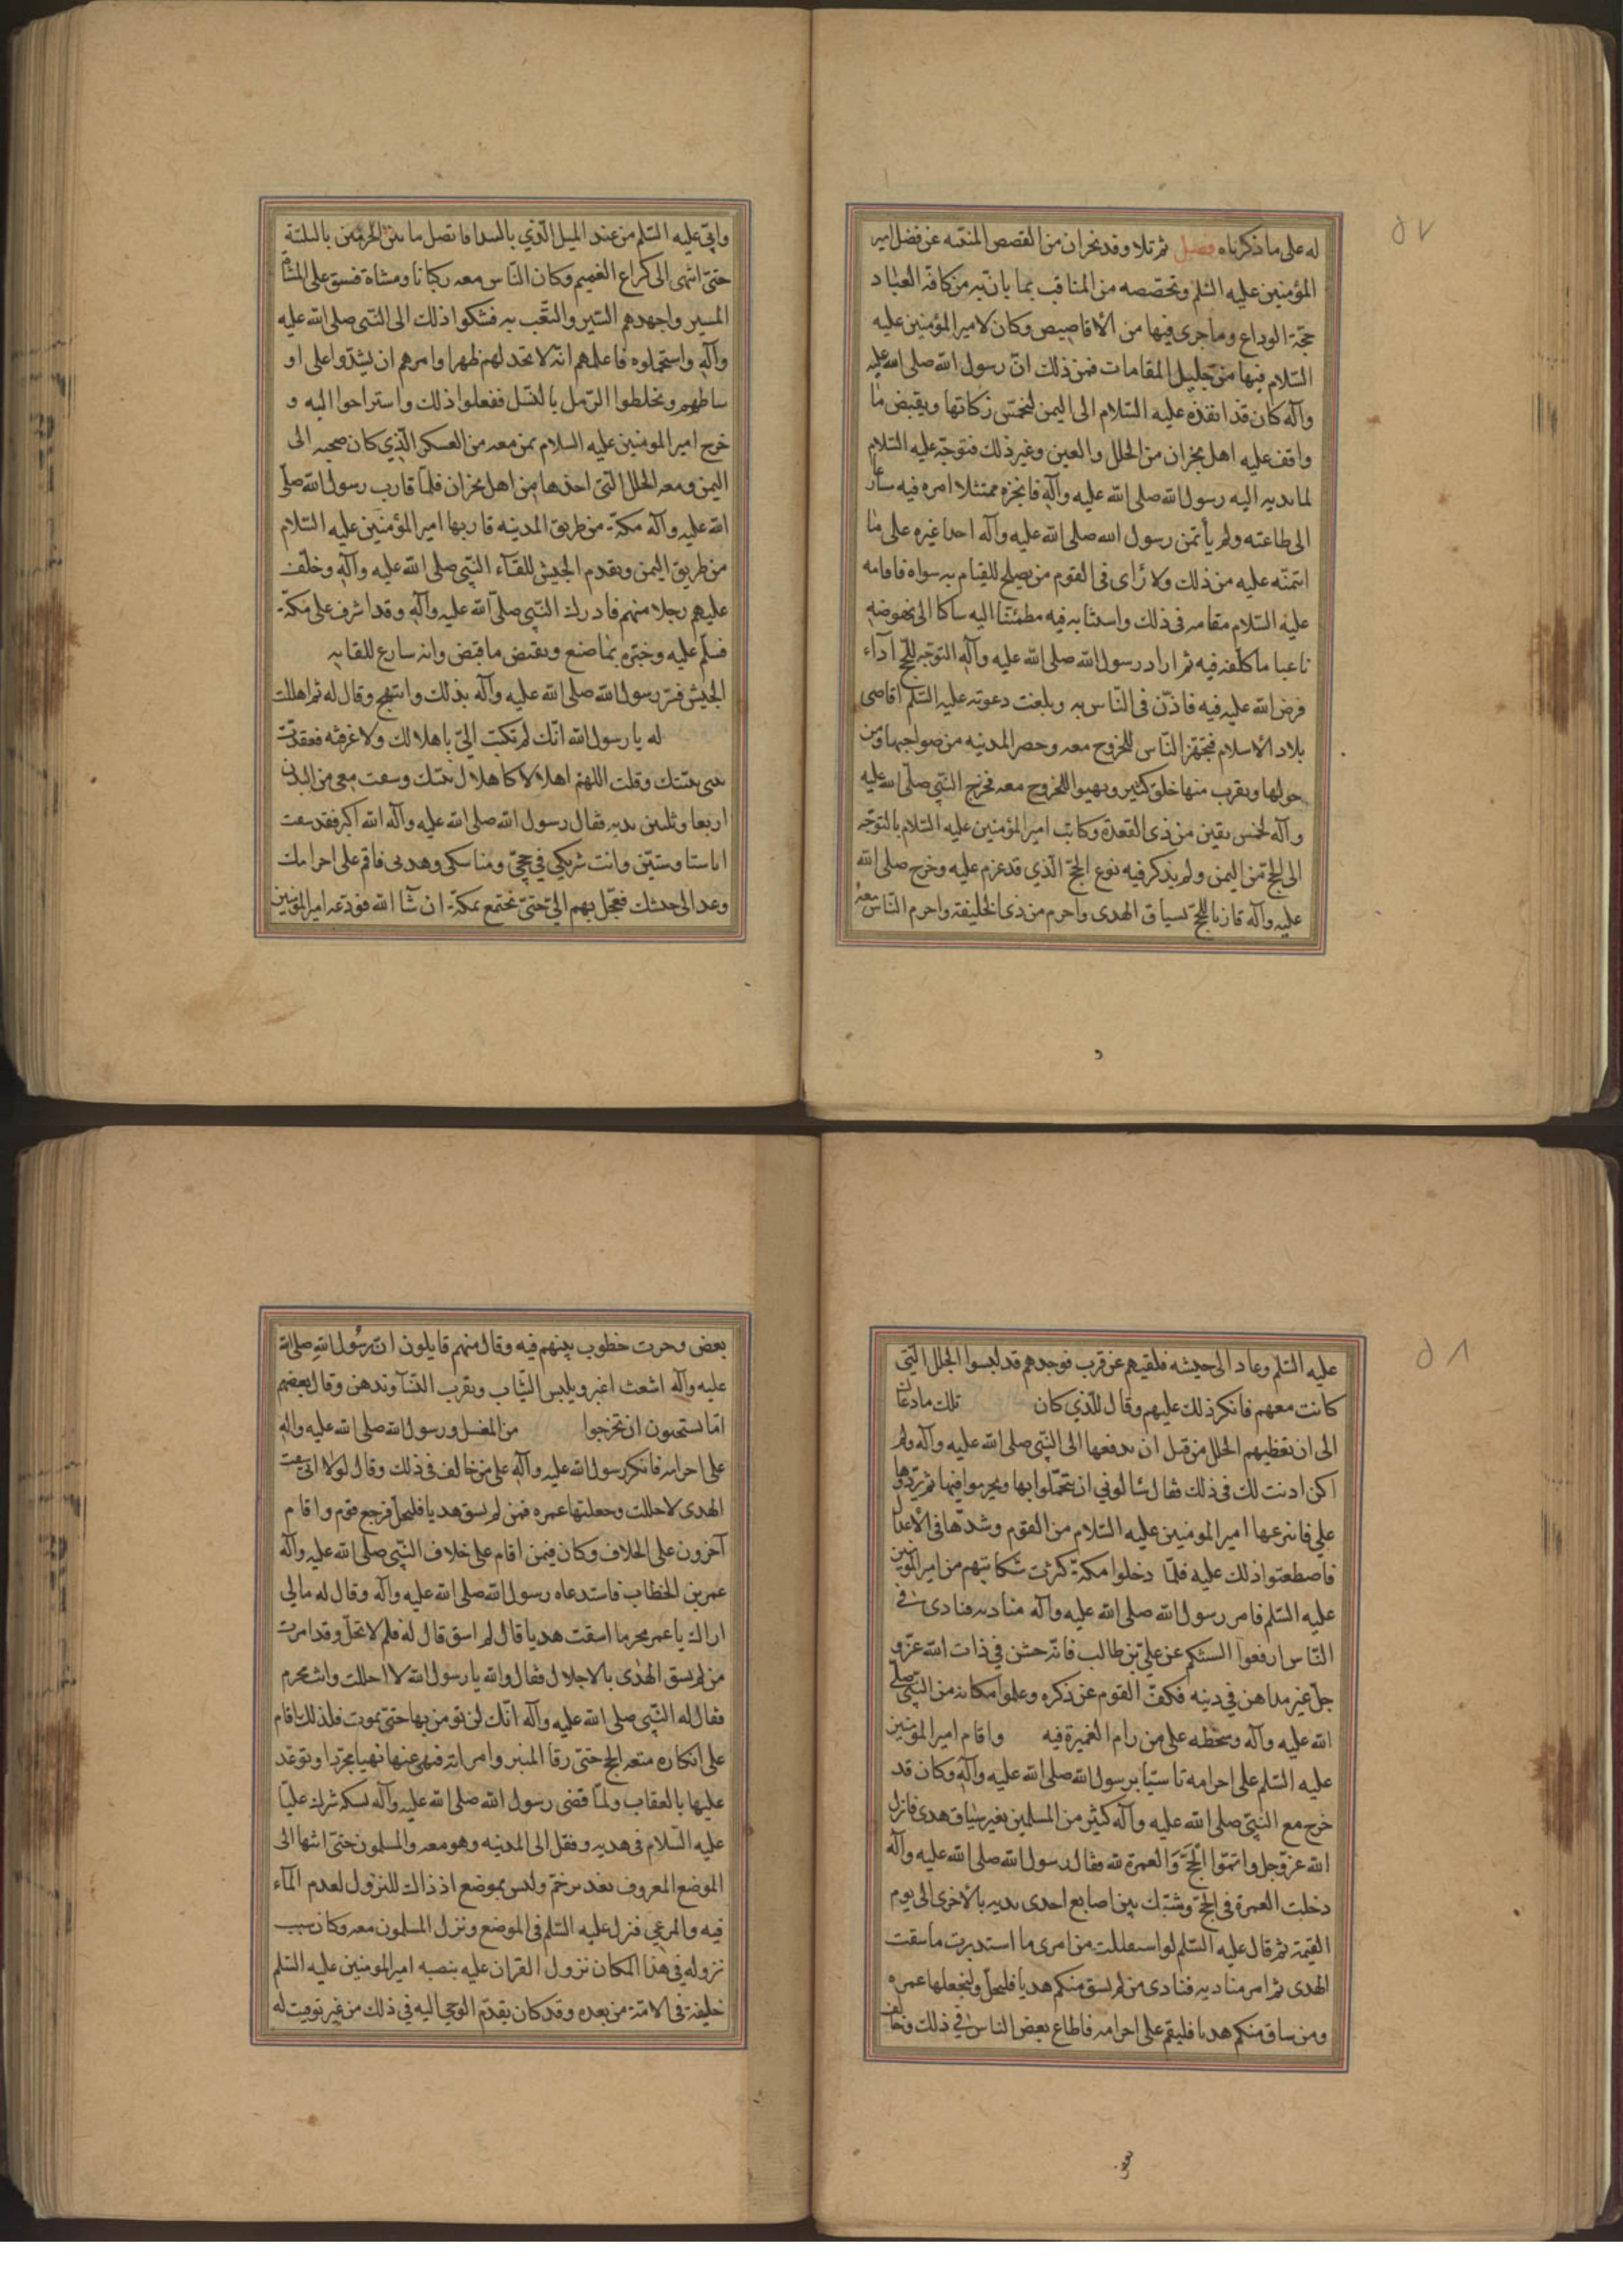 ٥٧
له على ما ذكرناه فصل ثم تلا وفد نجران من القصص المنبئه عن فضل امير
المؤمنين عليه السلم وتخصصه من المناقب بما بان به من كافة العباد
حجة الوداع وما جرى فيها من الأقاصيص وكان لامير المؤمنين عليه
السلام فيها من جليل المقامات فمن ذلك ان رسول الله صلى الله عليه
وآله كان قد انفذه عليه السلام الى اليمن ليخمس زكاتها ويقبض ما
واقف عليه اهل نجران من الحلل والعين وغير ذلك فتوجه عليه السلام
لما ندبه اليه رسول الله صلى الله عليه وآله فانجزه ممتثلا امره فيه سارعا
الى طاعته ولم يأتمن رسول الله صلى الله عليه وآله احدا غيره على ما
ائتمنه عليه من ذلك ولا رأى فى القوم من يصلح للقيام به سواه فاقامه
عليه السلام مقامه فى ذلك واستنابه فيه مطمئنا اليه ساكنا الى نهوضه
ناعبا ما كلفه فيه ثم اراد رسول الله صلى الله عليه وآله التوجه للحج آداء
فرض الله عليه فيه فاذن فى الناس به وبلغت دعوته عليه السلم اقاصى
بلاد الأسلام فتجهز الناس للخروج معه وحصر المدينه من ضواحيها ومن
حولها وبقرب منها خلق كثير وتهيوا للخروج معه فخرج النبي صلى الله عليه
وآله لخمس بقين من ذى القعدة وكاتب امير المؤمنين عليه السلام بالتوجه
الى الحج من اليمن ولم يذكر فيه نوع الحج الذي قد عزم عليه وخرج صلى الله
عليه وآله قارنا للحج بسياق الهدى واحرم من ذى الخليفة واحرم الناس معه
و
وابى عليه السلم من عند الميل الذي بالبيدا فاتصل ما بين الحرمين بالتلبية
حتى انتهى الى كراع الغميم وكان الناس معه ركبانا ومشاة فسق على المشاة
المسير واجهدهم السير والتعب به فشكوا ذلك الى النبى صلى الله عليه
وآله واستحملوه فاعلمهم انه لا تجد لهم ظهرا وامرهم ان يشدوا على او
ساطهم ويخلطوا الرمل بالنسل ففعلوا ذلك واستراحوا اليه و
خرج امير المومنين عليه السلام بمن معه من العسكر الذي كان صحبه الى
اليمن ومعه الحلل التى اخذها من اهل نجران فلما قارب رسول الله صلى
الله عليه وآله مكة من طريق المدينه قاربها امير المؤمنين عليه السلام
من طريق اليمن وتقدم الجيش للقاء النبي صلى الله عليه وآله وخلف
عليهم رجلا منهم فادرك النبى صلى الله عليه وآله وقد اشرف على مكة
فسلم عليه وخبره بما صنع وبقبض ما قبض وانه سارع للقايه
الجيش فسر رسول الله صلى الله عليه وآله بذلك وابتهج وقال له ثم اهللت
له يا رسول الله انك لم تكتب الي باهلالك ولا عرفته فعقدت
نيتى بنيتك وقلت اللهم اهلالا كاهلال نبيك وسقت معى من البدن
اربعا وثلثين بدنه فقال رسول الله صلى الله عليه وآله الله اكبر فقد سقت
انا ستا وستين وانت شريكي في حجي ومناسكى وهدى فاقم على احرامك
وعد الى جيشك فعجل بهم الي حتى نجتمع بمكة ان شآ الله فودعه امير المؤمنين
٥٨
عليه السلم وعاد الى جيشه فلقيهم عن قرب فوجدهم قد لبسوا الحلل التى
كانت معهم فانكر ذلك عليهم وقال للذي كان تلك ما دعاك
الى ان تعطيهم الحلل من قبل ان ندفعها الى النبي صلى الله عليه وآله ولم
اكن اذنت لك فى ذلك فقال سالونى ان يتجملوا بها ويحرموا فيها ثم يردوها
علي فانتزعها امير المومنين عليه السلام من القوم وشدها فى الأعدال
فاصطغنوا ذلك عليه فلما دخلوا مكة كثرت شكايتهم من امير المؤمنين
عليه السلم فامر رسول الله صلى الله عليه وآله مناديه فنادى في
الناس ارفعوا السنتكم عن علي بن طالب فانه خشن في ذات الله عز و
جل غير مداهن فى دينه فكف القوم عن ذكره وعلموا مكانه من النبي صلى
الله عليه وآله وسخطه على من رام الغميزة فيه واقام امير المؤمنين
عليه السلم على احرامه تاسيا برسول الله صلى الله عليه وآله وكان قد
خرج مع النبي صلى الله عليه وآله كثير من المسلمين بغير سياق هدى فانزل
الله عز وجل واتموا الحج والعمرة لله فقال رسول الله صلى الله عليه وآله
دخلت العمرة فى الحج وشبك بين اصابع احدى يديه بالأخرى الى يوم
القيمة ثم قال عليه السلم لو استقبلت من امرى ما استدبرت ما سقت
الهدى ثم امر مناديه فنادى من لم يسق منكم هديا فليحل وليجعلها عمره
ومن ساق منكم هديا فليقم على احرامه فاطاع بعض الناس في ذلك وخالف
بعض
بعض وجرت خطوب بينهم فيه وقال منهم قايلون ان رسول الله صلى الله
عليه وآله اشعث اغبر ويلبس الثياب ويقرب النسآ وتدهن وقال بعضهم
اما تستحيون ان تخرجوا من المغسل ورسول الله صلى الله عليه واله
على احرامه فانكر رسول الله عليه وآله على من خالف فى ذلك وقال لولا انى سقت
الهدى لاحللت وجعلتها عمره فمن لم يسق هديا فليحل فرجع قوم واقام
آخرون على الخلاف وكان فيمن اقام على خلاف النبي صلى الله عليه وآله
عمر بن الخطاب فاستدعاه رسول الله صلى الله عليه وآله وقال له مالي
اراك يا عمر محرما اسقت هديا قال لم اسق قال له فلم لا تحل وقد امرت
من لم يسق الهدى بالاحلال فقال والله يا رسول الله لا احللت وانت محرم
فقال له النبي صلى الله عليه وآله انك لن تومن بها حتى تموت فلذلك اقام
على انكاره متعه الحج حتى رقا المنبر فى امراته فنهى عنها نهيا مجردا وتوعد
عليها بالعقاب ولما قضى رسول الله صلى الله عليه وآله نسكه شرك عليا
عليه السلام فى هديه وقفل الى المدينه وهو معه والمسلمون حتى انتها الى
الموضع المعروف بغدير خم وليس بموضع اذ ذاك للنزول لعدم المآء
فيه والمرعي فنزل عليه السلم فى الموضع ونزل المسلمون معه وكان سبب
نزوله في هذا المكان نزول القران عليه بنصبه امير المؤمنين عليه السلم
خليفة فى الامة من بعده وقد كان يقدم الوحي اليه فى ذلك من غير توقيت له